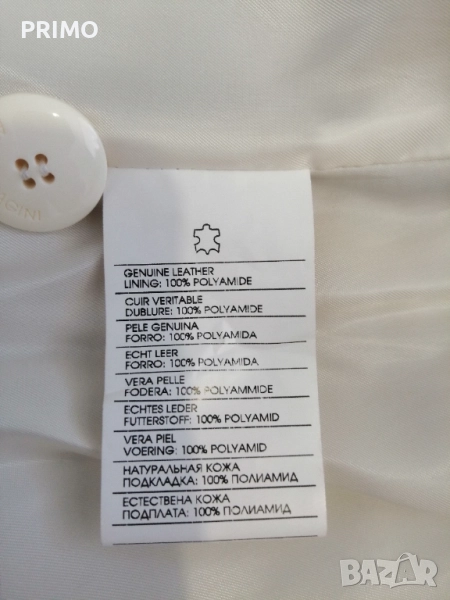 PRIMO
GENUINE LEATHER
LINING: 100% POLYAMIDE
CUIR VERITABLE
DUBLURE: 100% POLYAMIDE
PELE GENUINA
FORRO: 100% POLYAMIDA
ECHT LEER
FORRO: 100% POLYAMIDA
VERA PELLE
FODERA: 100% POLYAMMIDE
ECHTES LEDER
FUTTERSTOFF: 100% POLYAMID
VERA PIEL
VOERING: 100% POLYAMID
НАТУРАЛЬНАЯ КОЖА
ПОДКЛАДКА: 100% ПОЛИАМИД
ЕСТЕСТВЕНА КОЖА
ПОДПЛАТА: 100% ПОЛИАМИД
BAZAR